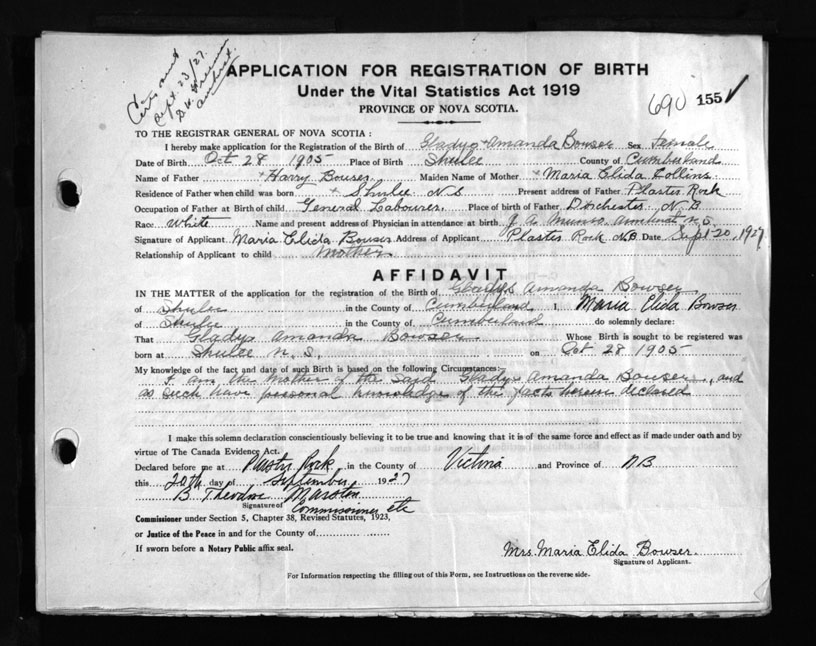 Sept. 23/27.
APPLICATION FOR REGISTRATION OF BIRTH
Under the Vital Statistics Act 1919
PROVINCE OF NOVA SCOTIA.
690 155
TO THE REGISTRAR GENERAL OF NOVA SCOTIA :
I hereby make application for the Registration of the Birth of Gladys Amanda Bowser Sex Female
Date of Birth Oct 28 1905 Place of Birth Shulee County of Cumberland
Name of Father Harry Bowser Maiden Name of Mother Maria Elida Collins
Residence of Father when child was born Shulee N.S Present address of Father Plaster Rock
Occupation of Father at Birth of child General Labourer Place of birth of Father Dorchester N.B
Race White Name and present address of Physician in attendance at birth J. A. Munro Amherst N.S.
Signature of Applicant Maria Elida Bowser Address of Applicant Plaster Rock N.B Date Sept 20, 1927
Relationship of Applicant to child Mother
AFFIDAVIT
IN THE MATTER of the application for the registration of the Birth of Gladys Amanda Bowser
of Shulee in the County of Cumberland I, Maria Elida Bowser
of Shulee in the County of Cumberland do solemnly declare:
That Gladys Amanda Bowser Whose Birth is sought to be registered was
born at Shulee N.S. on Oct 28 1905
My knowledge of the fact and date of such Birth is based on the following Circumstances:-
I am the mother of the said Gladys Amanda Bowser, and
as such have personal knowledge of the facts herein declared
I make this solemn declaration conscientiously believing it to be true and knowing that it is of the same force and effect as if made under oath and by
virtue of The Canada Evidence Act.
Declared before me at Plaster Rock in the County of Victoria and Province of NB
this 20th day of September 1927
B. Theodore Marsten
Signature of Commissioner etc
Commissioner under Section 5, Chapter 38, Revised Statutes, 1923,
or Justice of the Peace in and for the County of
If sworn before a Notary Public affix seal.
Mrs. Maria Elida Bowser
Signature of Applicant.
For Information respecting the filling out of this Form, see Instructions on the reverse side.